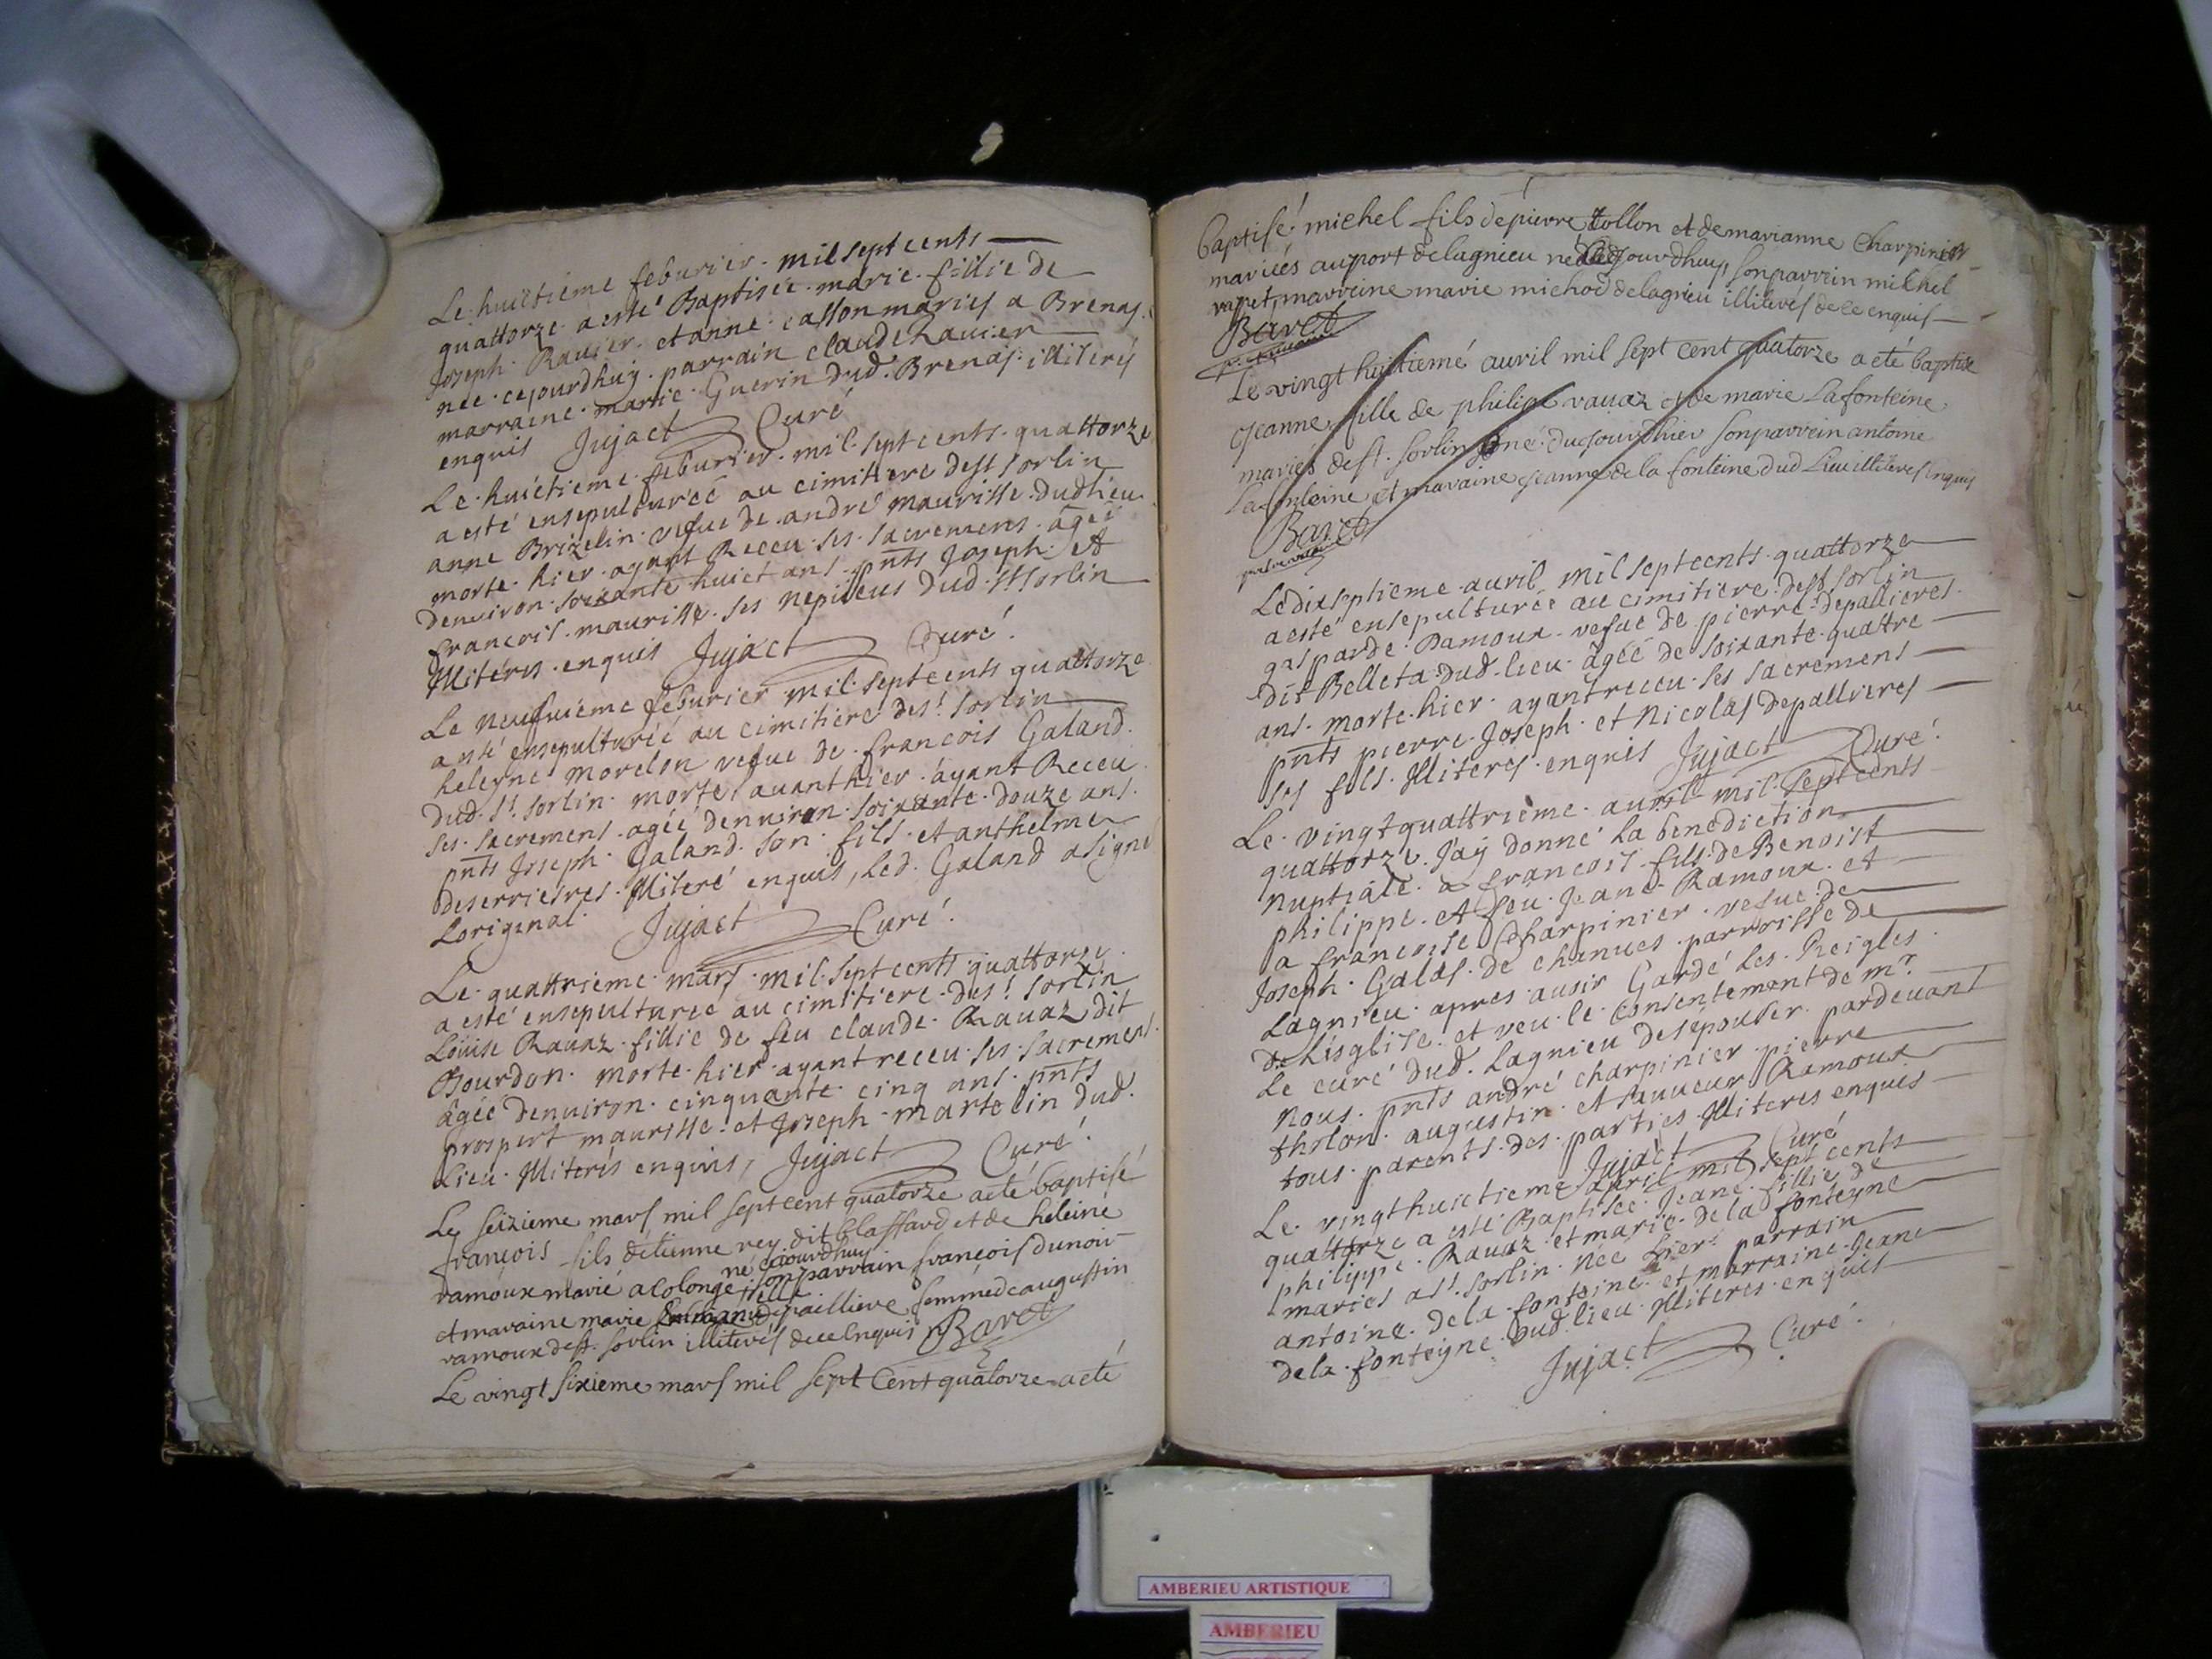 Le huictieme feburier mil sept cents
quattorze a esté Baptisée marie fillie de
Joseph Rauier et anne casson mariés a Brenas
née cejourdhuy parrain claude Rauier
marraine marie Guerin dud. Brenas illiterés
enquis Jujact Curé
Le huictieme feburier mil sept cents quattorze
a esté ensepulturéé au cimitiere dest sorlin
anne Brizelin vefue de andré maurisse dudlieu
morte hier ayant Receu ses sacremens âgéé
denuiron soixante huict ans pnts Joseph et
francois maurisse ses nepueus dud. st sorlin
Illiterés enquis Jujact Curé.
Le neufuieme feburier mil septcents quattorze
a esté ensepulturéé au cimitiere des.t sorlin
heleyne morelon vefue de francois Galand
dud. st. sorlin morte auanthier ayant Receu
ses sacremens agéé denuiron soixante douze ans
pnts Joseph Galand son fils et anthelme
deserriesres Illiteré enquis, Led. Galand a signé
Loriginal Jujact Curé.
Le quattrieme mars mil septcents quattorze
a esté ensepulturéé au cimitiere des.t sorlin
Loüise Rauaz fillie de feu claude Rauaz dit
Bourdon morte hier ayant receu ses sacremens
âgéé denuiron cinquante cinq ans pnts
prospert maurisse et Joseph martelin dud.
Lieu Illiterés enquis, Jujact Curé.
Le seizieme mars mil sept cent quatorze a eté baptisé
françois fils detienne rey dit blaffard et de heleine
né cejourdhuy
ramoux marié a Colonge son parrain françois dunoir
et maraine marie depailliere femme de augustin
ramoux dest. sorlin illiterés de ce enquis Baret
Le vingt sixieme mars mil sept Cent quatorze a eté
baptisé michel fils de pierre tollon et de marianne Charpinier
mariés au port de lagnieu né cejourdhuy, son parrein michel
rapet marreine marie michod de lagnieu illiterés de ce enquis
Baret
Le vingt huictiemé auril mil sept cent quatorze a eté baptisé
Jeanne fille de philipe rauaz et de marie Lafonteine
mariés dest. sorlin né du jour dhier son parrein antoine
Lafonteine et maraine jeanne de la fonteine dud Lieu illiterés Enquis
Baret
Le dixseptieme auril mil septcents quattorze
a esté ensepulturéé au cimitiere dest sorlin
gasparde Ramoux vefue de pierre depallieres
dit Belleta dud. lieu âgéé de soixante quattre
ans morte hier ayant receu ses sacremens
pnts pierre Joseph et Nicolas depallieres
ses fils Illiteres enquis Jujact Curé.
Le vingt quattrieme auril mil sept cents
quattorze J'aÿ donné La benediction
nuptiale a francois fils de Benoist
philippe et feu Jeane Ramoux et
a francoise Charpinier vefue de
Joseph Galas de chanues parroisse de
Lagnieu apres auoir Gardé Les Reigles
de Lisglise et veu le consentement de mr.
Le curé dud. Lagnieu desépouser pardeuant
nous pnts andré charpinier pierre
tholon augustin et sauueur Ramoux
tous parents des parties Illiteres enquis
Jujact Curé
Le vingthuictieme auril mil sept cents
quattorze a esté Baptisée Jeane fillie de
philippe Rauaz et marie de la fonteyne
mariés a st. sorlin née hier parrain
antoine de la fontoine et marraine Jeane
de la fonteyne dud. lieu Illiteres enquis
Jujact Curé.
AMBERIEU ARTISTIQUE
AMBERIEU